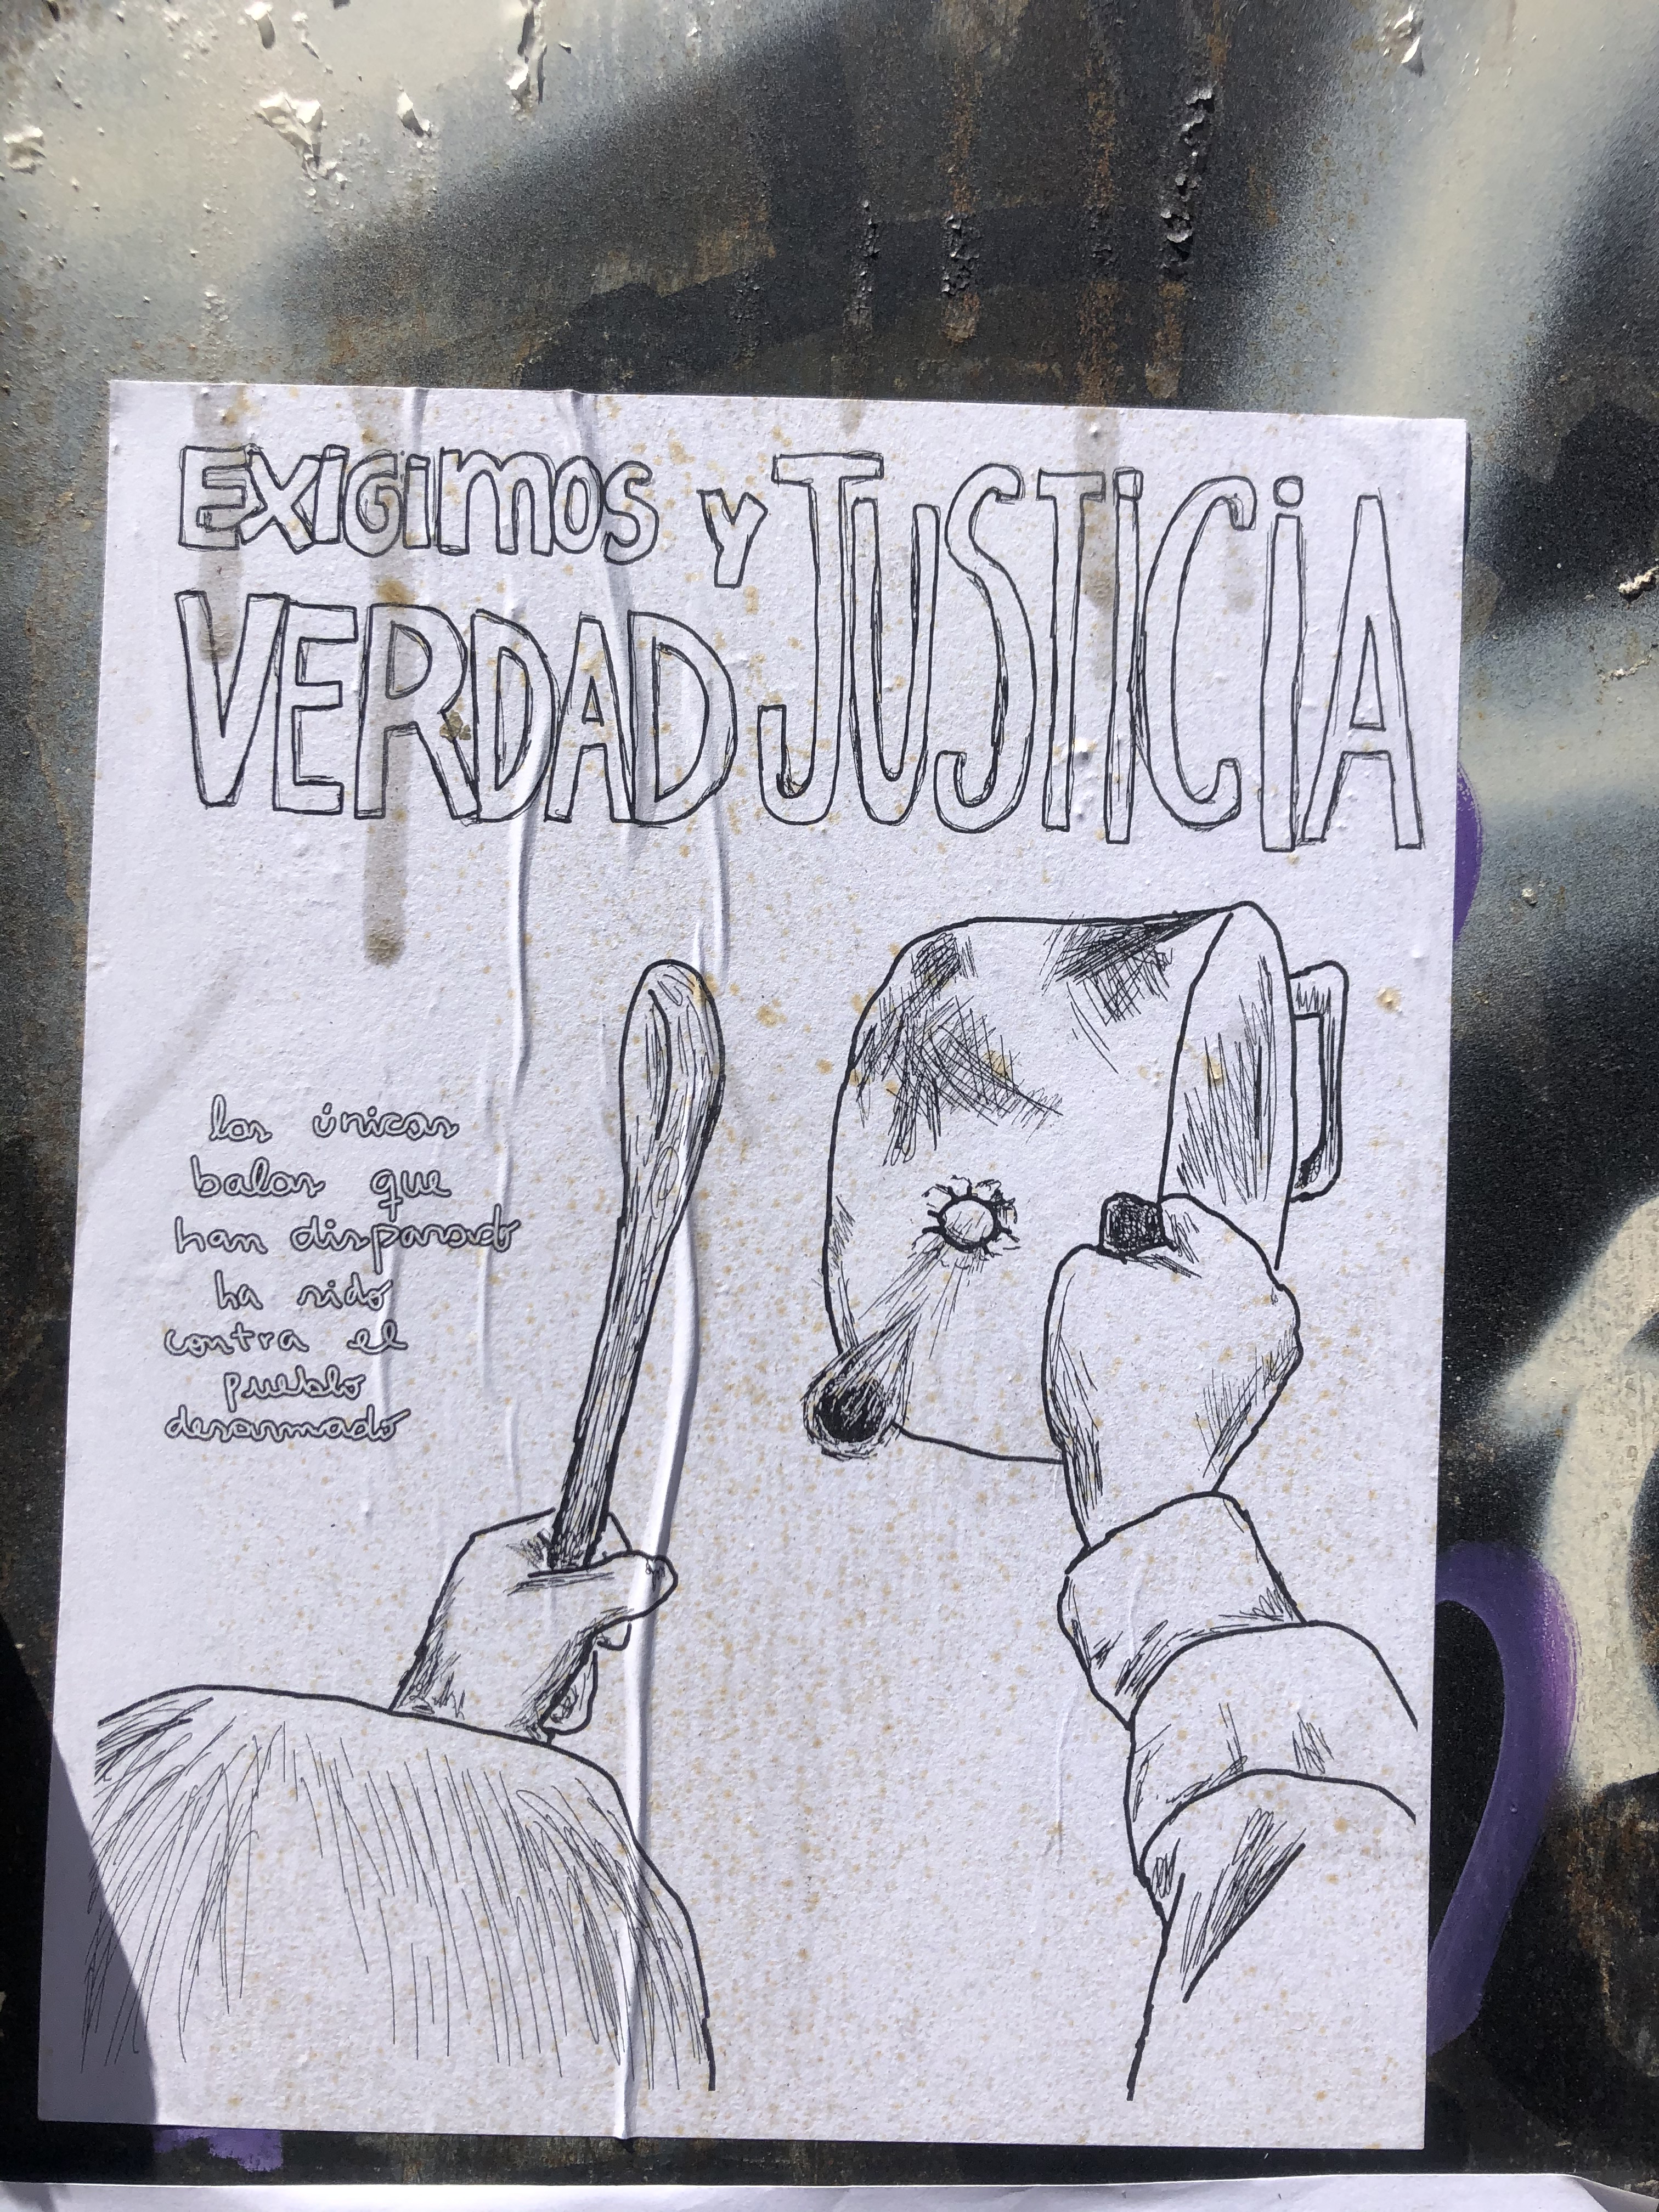 EXIGIMOS
VERDAD
Y JUSTICIA
las únicas
balas que
han disparado
ha sido
contra el
pueblo
desarmado